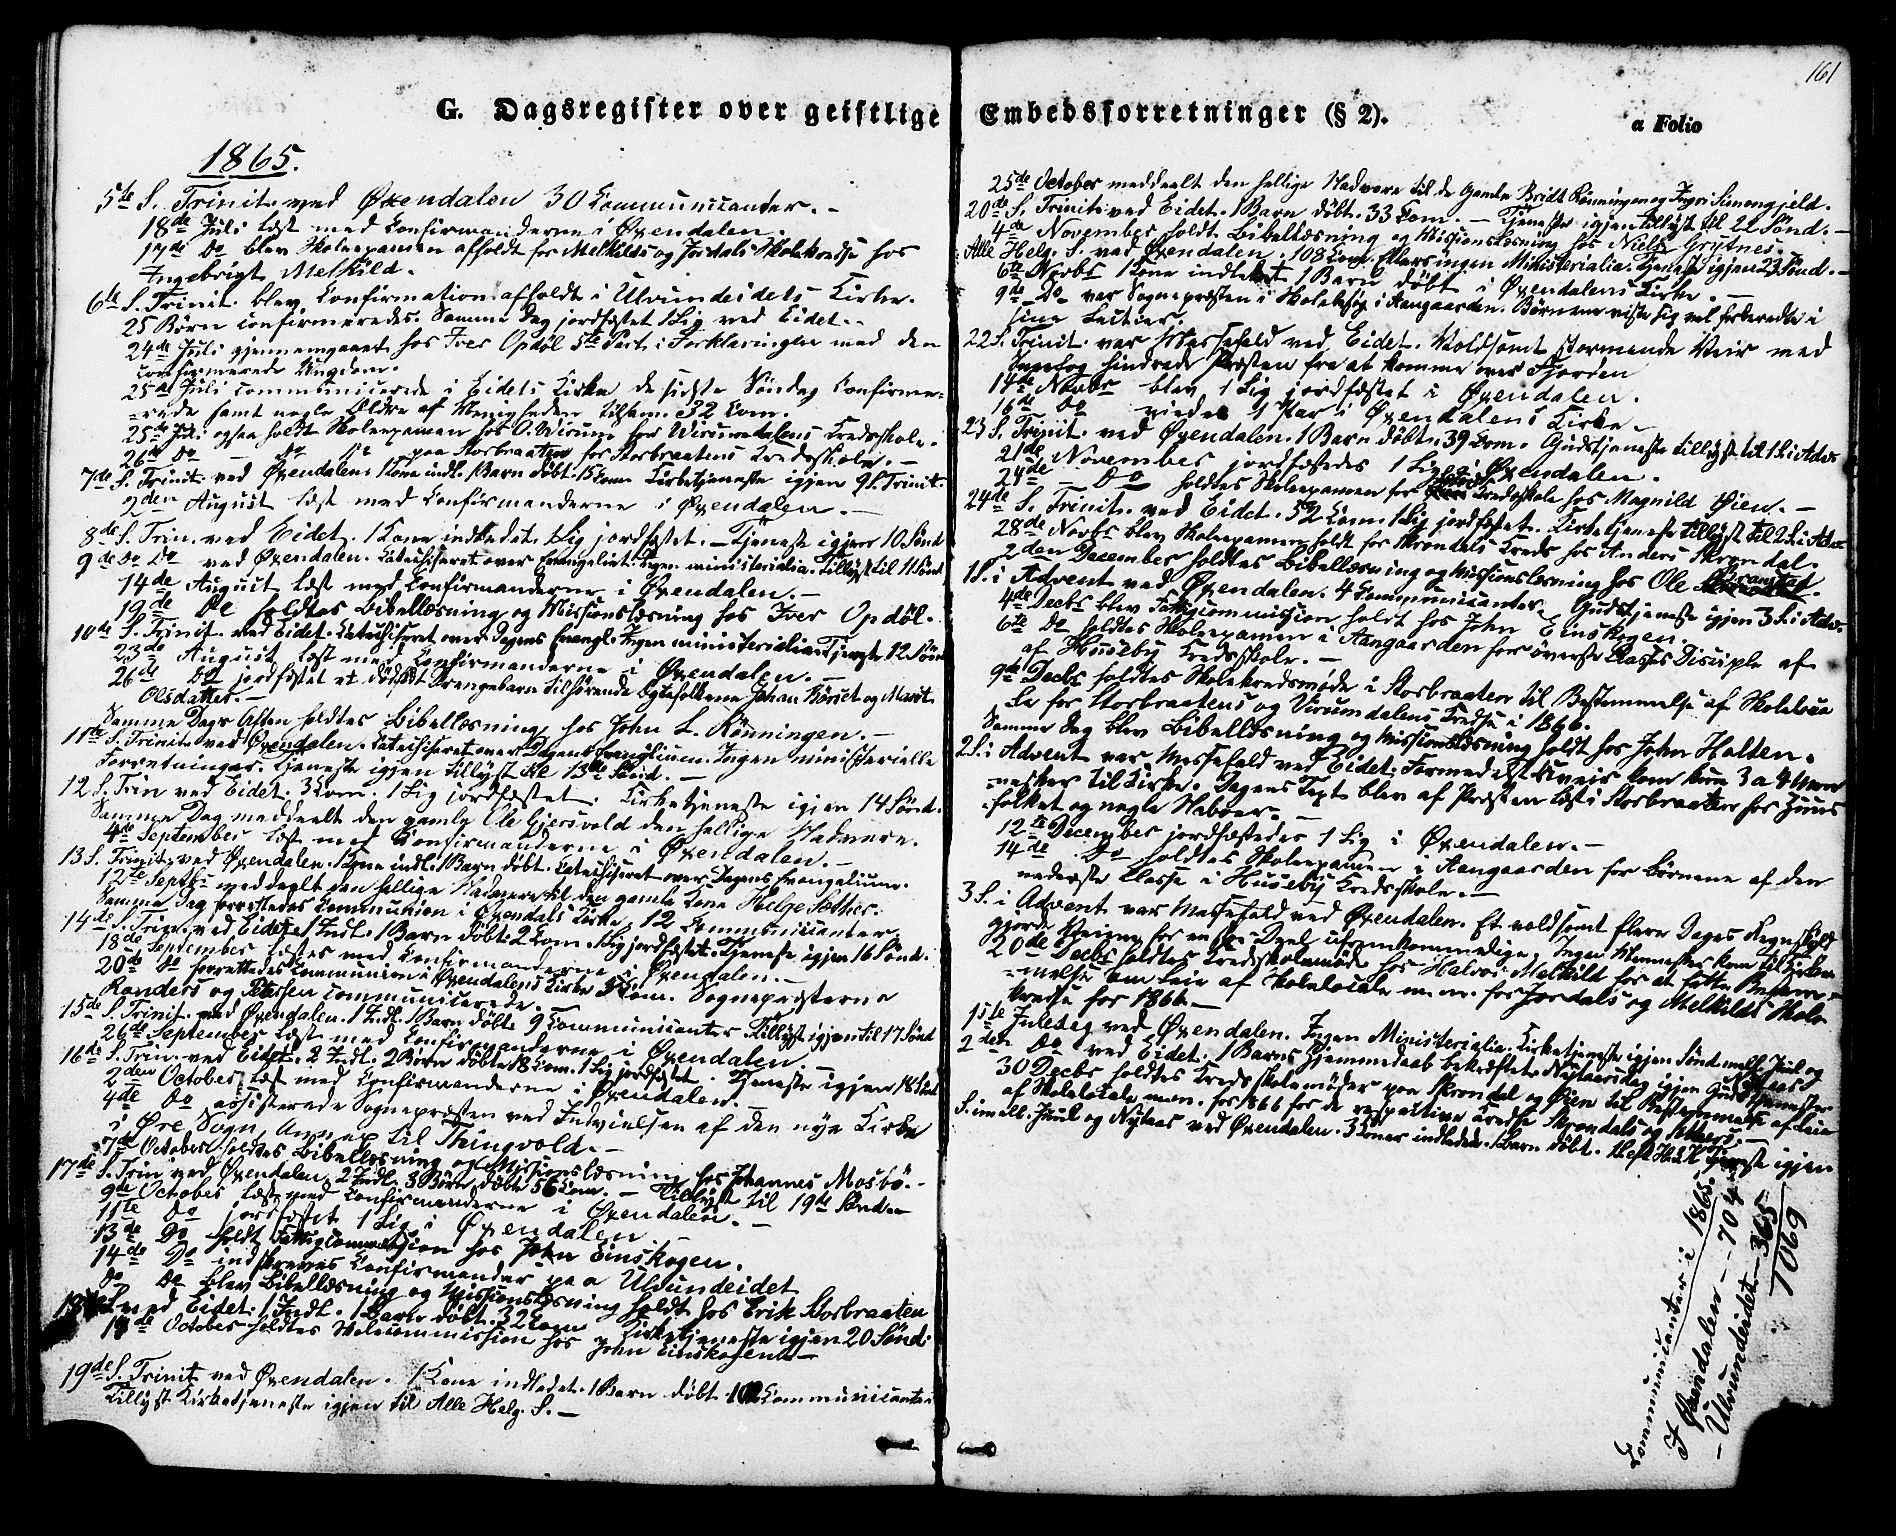 161
G. Dagsregister over geistlige Embedsforretninger (§ 2).
a Folio
1865.
5te S. Trinit. ved Øxendalen 30 Communicanter. -
18de Juli læst med Confirmanderne i Øxendalen.
17de Do blev Skoleexamen afholdt for Melkilds og Jordals Skolekredse hos
Ingebrigt Melkild.
6te S. Trinit. blev Confirmation afholdt i Ulvundeidets Kirke.
25 Børn confirmeredes. Samme Dag jordfæstet 1 Lig ved Eidet.
24de Juli gjennemgaaet hos Iver Opdøl 5te Part i Forklaringen med den
confirmerede Ungdom.
25de Juli communicerede i Eidets Kirke de sidste Søndag Confirme-
-rede samt nogle Ældre af Menigheden tilsam. 32 Com.
25de Juli ogsaa holdt Skoleexamen hos O. Virum for Virumdalens Kredsskole.
26de Do - Do paa Storbraaten for Storbraatens Kredsskole. -
7de S. Trinit. ved Øxendalen 1 Kone indl. 1 Barn døbt. 15 Com. Kirketjeneste igjen 9 S. Trinit.
2den August læst med Confirmanderne i Øxendalen. -
8de S. Trin. ved Eidet. 1 Kone indledet. 1 Lig jordfæstet. - Tjeneste igjen 10 Sønd
9de Do Do ved Øxendalen. Catechiseret over Evangeliet. Ingen ministerialia. Tillyst til 11 Sønd
14de August læst med Confirmanderne i Øxendalen. -
19de Do holdtes Bibellæsning og Missionslæsning hos Iver Opdøl.
10de S. Trinit. ved Eidet. Catechiseret over Dagens Evangl. Ingen ministerialia Tjeneste 12 Sønd
23de August læst med Confirmanderne i Øxendalen. -
26de Do jordfæstet et dødfødt Drengebarn tilhørende Egtefolkene Johan Børset og Marit
Olsdatter. -
Samme Dags Aften holdtes Bibellæsning hos John L. Rønningen. -
11te S. Trinit. ved Øxendalen. Catechiseret over Dagens Evangelium. Ingen ministerielle
Forretninger. Tjeneste igjen tillyst til 13de Sønd. -
12 S. Trin ved Eidet. 3 Com. 1 Lig jordfæstet. Kirketjeneste igjen 14 Sønd.
Samme Dag meddeelt den gamle Ole Gjersvold den hellige Nadvere.
4de September læst med Confirmanderne i Øxendalen. -
13 S. Trinit. ved Øxendalen. 1 Kone indl. 1 Barn døbt. Catechiseret over Dagens Evangelium.
12te Septbr meddeelt den hellige Nadvere til den gamle Kone Helge Sæther.
Samme Dag forrettedes Communion i Øxendals Kirke, 12 Communicanter.
14de S. Trin. ved Eidet 1 Indl. 1 Barn døbt 2 Com. 1 Lig jordfæstet. Tjeneste igjen 16 Sønd.
18de September læstes med Confirmanderne i Øxendalen. -
20de Do forrettedes Communion i Øxendalens Kirke Com. Sognepræsterne
Randers og Petersen communicerede.
15de S. Trinit. ved Øxendalen. 1 Indl. 1 Barn døbt 9 Communicanter Tillyst igjen til 17 Sønd
26de September læst med Confirmanderne i Øxendalen
16de S. Trin. ved Eidet. 2 Indl. 2 Børn døbte 18 Com. 1 Lig jordfæstet. Tjeneste igjen 18 Sønd
2den October læst med Confirmanderne i Øxendalen. -
4de Do assisterede Sognepræsten ved Indvielsen af den nye Kirke
i Øre Sogn, Annex til Thingvold. -
7de October holdtes Bibellæsning og Missionslæsning hos Johannes Mosbø. -
17de S. Trin ved Øxendalen 2 Indl. 3 Børn døbte 56 Com. - Tillyst til 19de Sønd.
9de October læst med Confirmanderne i Øxendalen. -
11te Do jordfæstet 1 Lig i Øxendalen
13de Do holdt Fattigcommission hos John Einskogen.
14de Do indskreves Confirmander paa Ulvundeidet
Do Do blev Bibellæsning og Missionslæsning holdt hos Erik Storbraaten
18de S. ved Eidet. 1 Indl. 1 Barn døbt. 32 Com. Kirketjeneste igjen 20 Sønd.
de October holdtes Valcommission hos John Einskogen. -
19de S. Trinit ved Øxendalen. 1 Kone indledet. 1 Barn døbt. 102 Communicanter
Tillyst Kirketjeneste igjen til Alle Helg. S. -
25de October meddeelt den hellige Nadvere til de Gamle Bridt Rønningen og Ingri Simengjeld.
20de S. Trinit. ved Eidet. 1 Barn døbt. 33 Com. - Tjeneste igjen tillyst til 22 Sønd. -
4de November holdt Bibellæsning og Missionslæsning hos Niels Grytnes.
Alle Helg. S. ved Øxendalen. 108 Com. Ellers ingen Ministerialia. Tjeneste igjen 23 Sønd. -
6te Novbr 1 Kone indledet 1 Barn døbt i Øxendalens Kirke. -
9de Do var Sognepræsten i Skolebesøg i Aangaarden. Børnene viste sig vel forberedte i
sine Lectier.
22 S. Trinit. var Messefald ved Eidet. Voldsomt stormende Veir med
Snefog hindrede Præsten fra at komme over Fjorden
14de Novbr blev 1 Lig jordfæstet i Øxendalen.
16de Do viedes 1 Par i Øxendalens Kirke.
23 S. Trinit. ved Øxendalen. 1 Barn døbt. 39 Com. Gudstjeneste tillyst til 1 S. i Adv.
21de November jordfæstedes 1 Lig i Øxendalen.
24de - Do holdtes Skoleexamen for Kredsskole hos Magnild Øien. -
24de S. Trinit. ved Eidet. 52 Com. 1 Lig jordfæstet. Kirketjeneste tillyst til 2 S. i Adv.
28de Novbr blev Skoleexamen holdt for Skrondals Kreds hos Anders Skrondal.
2den December holdtes Bibellæsning og Missionslæsning hos Ole
1 S. i Advent ved Øxendalen. 4 Communicanter. Gudstjeneste igjen 3 S. i Adv.
4de Decbr blev Fattigcommission holdt hos John Einskogen.
6te Do holdtes Skoleexamen i Aangaarden for øverste Classes Disciple af
af Huseby Kredsskole. -
9de Decbr holdtes Skolekredsmøde i Storbraaten til Bestemmelse af Skoleloca
le for Storbraatens og Virumdalens Kredse i 1866.
Samme Dag blev Bibellæsning og Missionslæsning holdt hos John Halten.
2 S. i Advent var Messefald ved Eidet. Formedelst Uveir kom kun 3 a 4 Men
nesker til Kirke. Dagens Text blev af Præsten læst i Storbraaten for Huus
folket og nogle Naboer. -
12te December jordfæstedes 1 Lig i Øxendalen. -
14de Do holdtes Skoleexamen i Aangaarden for Børnene af den
nederste Classe i Huseby Kredsskole. -
3 S. i Advent var Messefald ved Øxendalen. Et voldsomt flere Dages Regnskyld
gjorde Veiene for en Deel ufremkommelige. Ingen Mennesker kom til Kirken
20de Decbr holdtes Kredsskolemøde hos Halvor Melkild for at fatte Bestem-
-melse om Leie af Skolelocale m. m. for Jordals og Melkilds Skole
kredse for 1866. -
1ste Juledag ved Øxendalen. Ingen Ministerialia. Kirketjeneste igjen Sønd. mell. Juul og
2den Do ved Eidet. 1 Barns Hjemmedaab bekræftet. Nytaarsdag igjen Gudstjeneste
30 Decbr holdtes Kredsskolemøder paa Skrondal og Øien til Bestemmelse af Leie
af Skolelocale m. m. for 1866 for de respective Kredse Skrondals og
S. imell. Juul og Nytaar ved Øxendalen. 3 Koner indledet. 1 Barn døbt. Tjeneste igjen
Communicanter i 1865.
I Øxendalen - - 704
- Ulvundeidet - 365
1069